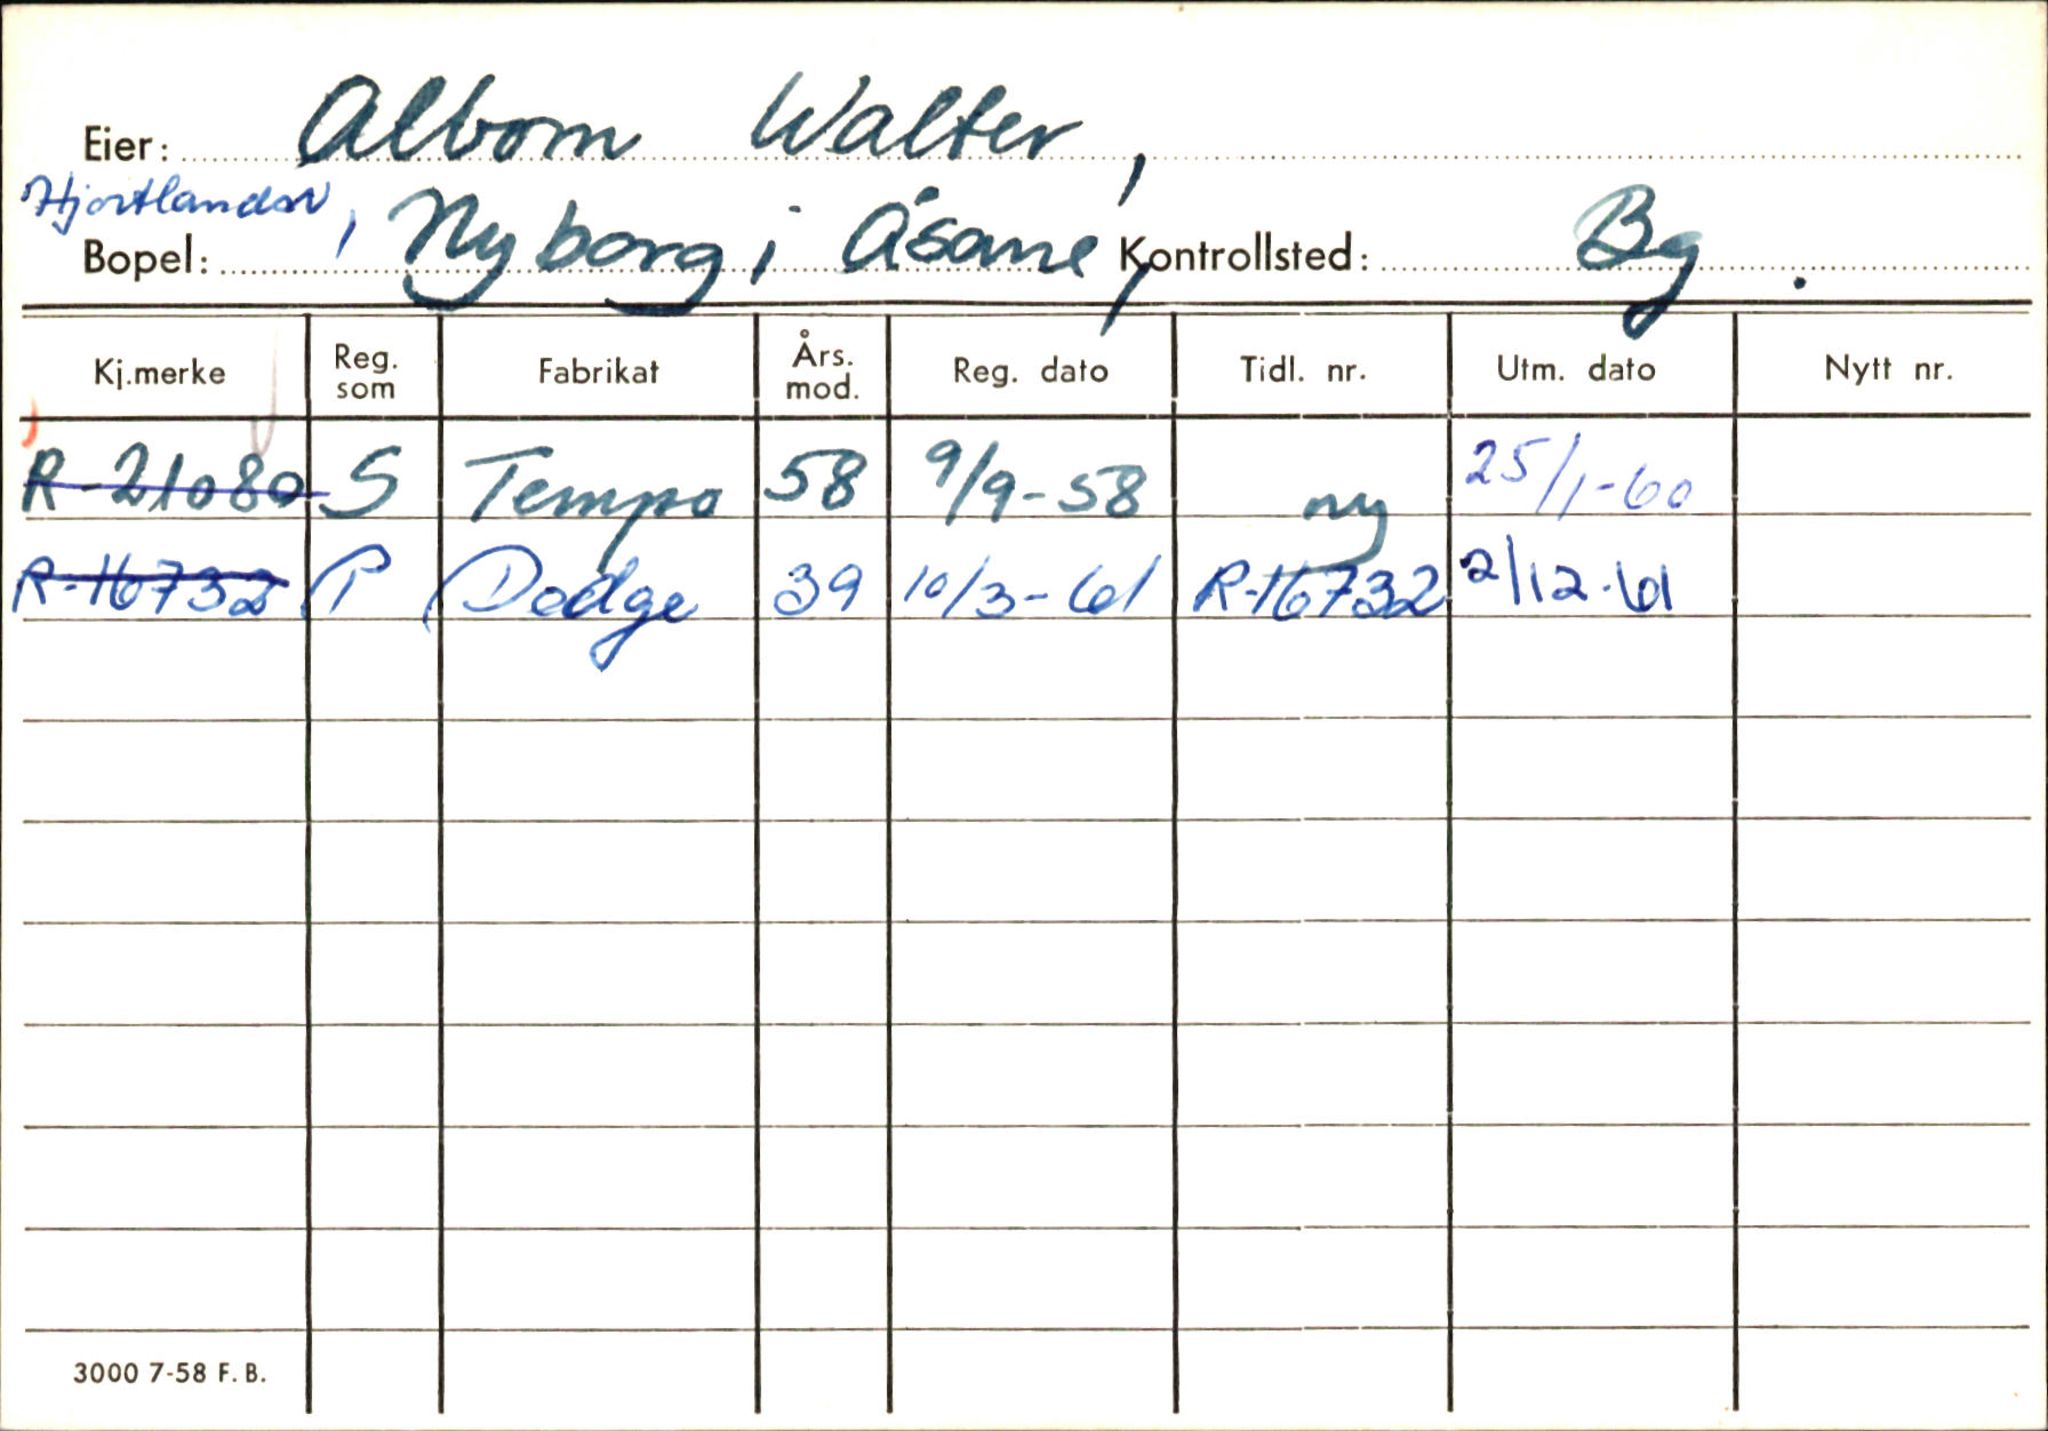 Eier: Albom Walter,
Hjortlandsv,
Bopel: Nyborg i Åsane, Kontrollsted: Bg.
Kj.merke Reg. som Fabrikat Års. mod. Reg. dato Tidl. nr. Utm. dato Nytt nr.
R-21080 S Tempo 58 9/9-58 ny 25/1-60
R-16732 P Dodge 39 10/3-61 R-16732 2/12-61
3000 7-58 F. B.